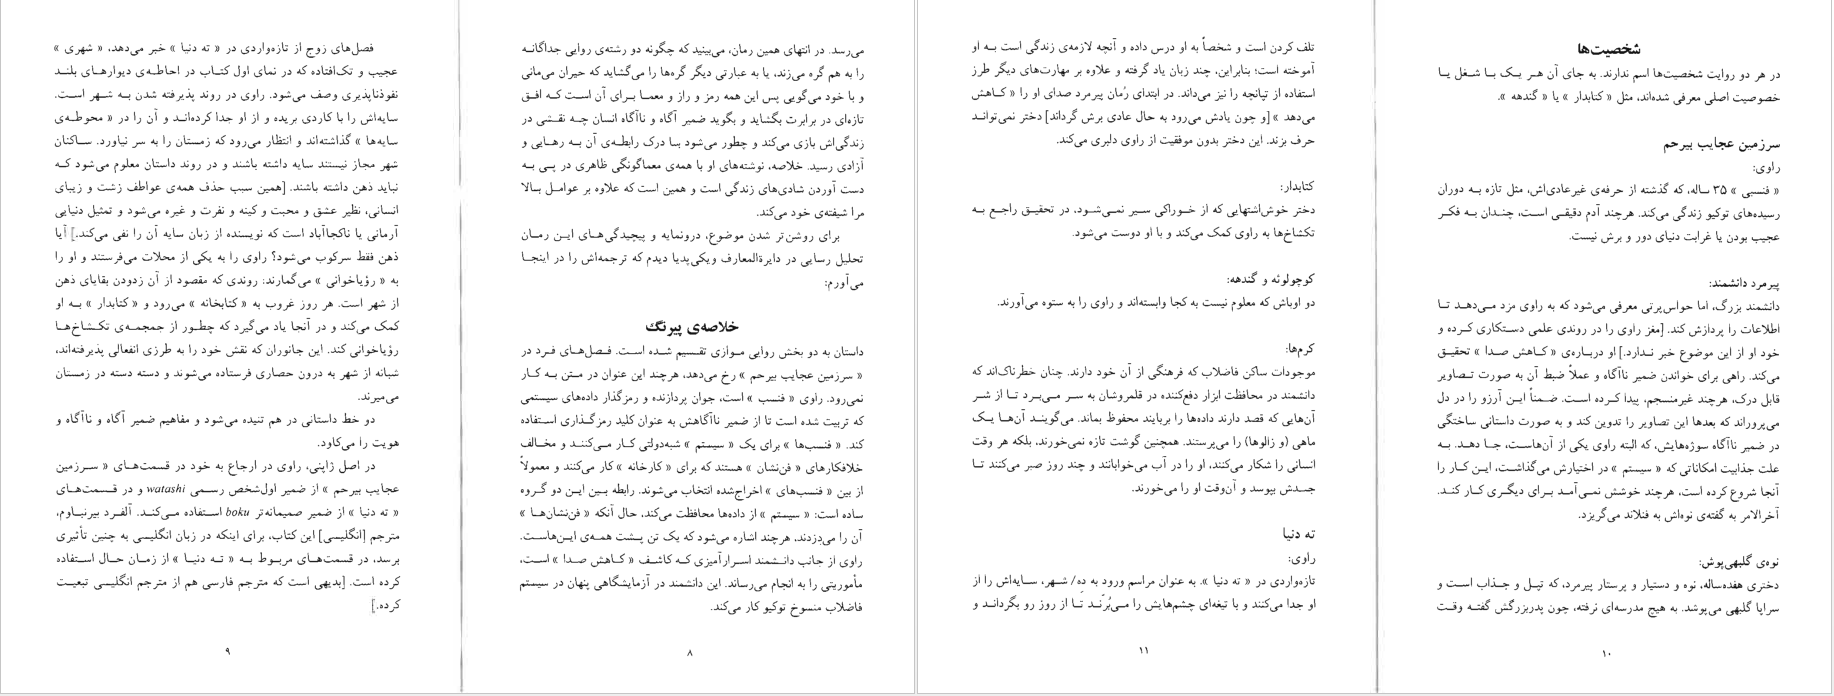 می‌رسد. در انتهای همین رمان، می‌بینید که چگونه دو رشته‌ی روایی جداگانه
را به هم گره می‌زند، یا به عبارتی دیگر گره‌ها را می‌گشاید که حیران می‌مانی
و با خود می‌گویی پس این همه رمز و راز و معما برای آن است که افق
تازه‌ای در برابرت بگشاید و بگوید ضمیر آگاه و ناآگاه انسان چه نقشی در
زندگی‌اش بازی می‌کند و چطور می‌شود با درک رابطه‌ی آن به رهایی و
آزادی رسید. خلاصه، نوشته‌های او با همه‌ی معماگونگی ظاهری در پی به
دست آوردن شادی‌های زندگی است و همین است که علاوه بر عوامل بالا
مرا شیفته‌ی خود می‌کند.
برای روشن‌تر شدن موضوع، درونمایه و پیچیدگی‌های این رمان
تحلیل رسایی در دایرةالمعارف ویکی‌پدیا دیدم که ترجمه‌اش را در اینجا
می‌آورم:
خلاصه‌ی پیرنگ
داستان به دو بخش روایی موازی تقسیم شده است. فصل‌های فرد در
« سرزمین عجایب بیرحم » رخ می‌دهد، هرچند این عنوان در متن به کار
نمی‌رود. راوی « فنسب » است، جوان پردازنده و رمزگذار داده‌های سیستمی
که تربیت شده است تا از ضمیر ناآگاهش به عنوان کلید رمزگذاری استفاده
کند. « فنسب‌ها » برای یک « سیستم » شبه‌دولتی کار می‌کنند و مخالف
خلافکارهای « فن‌نشان » هستند که برای « کارخانه » کار می‌کنند و معمولاً
از بین « فنسب‌های » اخراج‌شده انتخاب می‌شوند. رابطه بین این دو گروه
ساده است: « سیستم » از داده‌ها محافظت می‌کند، حال آنکه « فن‌نشان‌ها »
آن را می‌دزدند، هرچند اشاره می‌شود که یک تن پشت همه‌ی این‌هاست.
راوی از جانب دانشمند اسرارآمیزی که کاشف « کاهش صدا » است،
مأموریتی را به انجام می‌رساند. این دانشمند در آزمایشگاهی پنهان در سیستم
فاضلاب منسوخ توکیو کار می‌کند.
۸
فصل‌های زوج از تازه‌واردی در « ته دنیا » خبر می‌دهد، « شهری »
عجیب و تک‌افتاده که در نمای اول کتاب در احاطه‌ی دیوارهای بلند
نفوذناپذیری وصف می‌شود. راوی در روند پذیرفته شدن به شهر است.
سایه‌اش را با کاردی بریده و از او جدا کرده‌اند و آن را در « محوطه‌ی
سایه‌ها » گذاشته‌اند و انتظار می‌رود که زمستان را به سر نیاورد. ساکنان
شهر مجاز نیستند سایه داشته باشند و در روند داستان معلوم می‌شود که
نباید ذهن داشته باشند. [همین سبب حذف همه‌ی عواطف زشت و زیبای
انسانی، نظیر عشق و محبت و کینه و نفرت و غیره می‌شود و تمثیل دنیایی
آرمانی یا ناکجاآباد است که نویسنده از زبان سایه آن را نفی می‌کند.] آیا
ذهن فقط سرکوب می‌شود؟ راوی را به یکی از محلات می‌فرستند و او را
به « رؤیاخوانی » می‌گمارند: روندی که مقصود از آن زدودن بقایای ذهن
از شهر است. هر روز غروب به « کتابخانه » می‌رود و « کتابدار » به او
کمک می‌کند و در آنجا یاد می‌گیرد که چطور از جمجمه‌ی تکشاخ‌ها
رؤیاخوانی کند. این جانوران که نقش خود را به طرزی انفعالی پذیرفته‌اند،
شبانه از شهر به درون حصاری فرستاده می‌شوند و دسته دسته در زمستان
می‌میرند.
دو خط داستانی در هم تنیده می‌شود و مفاهیم ضمیر آگاه و ناآگاه و
هویت را می‌کاود.
در اصل ژاپنی، راوی در ارجاع به خود در قسمت‌های « سرزمین
عجایب بیرحم » از ضمیر اول‌شخص رسمی watashi و در قسمت‌های
« ته دنیا » از ضمیر صمیمانه‌تر boku استفاده می‌کند. آلفرد بیرنباوم،
مترجم [انگلیسی] این کتاب، برای اینکه در زبان انگلیسی به چنین تأثیری
برسد، در قسمت‌های مربوط به « ته دنیا » از زمان حال استفاده
کرده است. [بدیهی است که مترجم فارسی هم از مترجم انگلیسی تبعیت
کرده.]
۹
شخصیت‌ها
در هر دو روایت شخصیت‌ها اسم ندارند. به جای آن هر یک با شغل یا
خصوصیت اصلی معرفی شده‌اند، مثل « کتابدار » یا « گندهه ».
سرزمین عجایب بیرحم
راوی:
« فنسبی » ۳۵ ساله، که گذشته از حرفه‌ی غیرعادی‌اش، مثل تازه به دوران
رسیده‌های توکیو زندگی می‌کند. هرچند آدم دقیقی است، چندان به فکر
عجیب بودن یا غرابت دنیای دور و برش نیست.
پیرمرد دانشمند:
دانشمند بزرگ، اما حواس‌پرتی معرفی می‌شود که به راوی مزد می‌دهد تا
اطلاعات را پردازش کند. [مغز راوی را در روندی علمی دستکاری کرده و
خود او از این موضوع خبر ندارد.] او درباره‌ی « کاهش صدا » تحقیق
می‌کند. راهی برای خواندن ضمیر ناآگاه و عملاً ضبط آن به صورت تصاویر
قابل درک، هرچند غیرمنسجم، پیدا کرده است. ضمناً این آرزو را در دل
می‌پروراند که بعدها این تصاویر را تدوین کند و به صورت داستانی ساختگی
در ضمیر ناآگاه سوژه‌هایش، که البته راوی یکی از آن‌هاست، جا دهد. به
علت جذابیت امکاناتی که « سیستم » در اختیارش می‌گذاشت، این کار را
آنجا شروع کرده است، هرچند خوشش نمی‌آمد برای دیگری کار کند.
آخرالامر به گفته‌ی نوه‌اش به فنلاند می‌گریزد.
نوه‌ی گلبهی‌پوش:
دختری هفده‌ساله، نوه و دستیار و پرستار پیرمرد، که تپل و جذاب است و
سراپا گلبهی می‌پوشد. به هیچ مدرسه‌ای نرفته، چون پدربزرگش گفته وقت
۱۰
تلف کردن است و شخصاً به او درس داده و آنچه لازمه‌ی زندگی است به او
آموخته است؛ بنابراین، چند زبان یاد گرفته و علاوه بر مهارت‌های دیگر طرز
استفاده از تپانچه را نیز می‌داند. در ابتدای رُمان پیرمرد صدای او را « کاهش
می‌دهد » [و چون یادش می‌رود به حال عادی برش گرداند] دختر نمی‌تواند
حرف بزند. این دختر بدون موفقیت از راوی دلبری می‌کند.
کتابدار:
دختر خوش‌اشتهایی که از خوراکی سیر نمی‌شود، در تحقیق راجع به
تکشاخ‌ها به راوی کمک می‌کند و با او دوست می‌شود.
کوچولوئه و گندهه:
دو اوباش که معلوم نیست به کجا وابسته‌اند و راوی را به ستوه می‌آورند.
کرم‌ها:
موجودات ساکن فاضلاب که فرهنگی از آن خود دارند. چنان خطرناک‌اند که
دانشمند در محافظت ابزار دفع‌کننده در قلمروشان به سر می‌برد تا از شر
آن‌هایی که قصد دارند داده‌ها را بربایند محفوظ بماند. می‌گویند آن‌ها یک
ماهی (و زالوها) را می‌پرستند. همچنین گوشت تازه نمی‌خورند، بلکه هر وقت
انسانی را شکار می‌کنند، او را در آب می‌خوابانند و چند روز صبر می‌کنند تا
جسدش بپوسد و آن‌وقت او را می‌خورند.
ته دنیا
راوی:
تازه‌واردی در « ته دنیا ». به عنوان مراسم ورود به دِه/ شهر، سایه‌اش را از
او جدا می‌کنند و با تیغه‌ای چشم‌هایش را می‌بُرّند تا از روز رو بگرداند و
۱۱